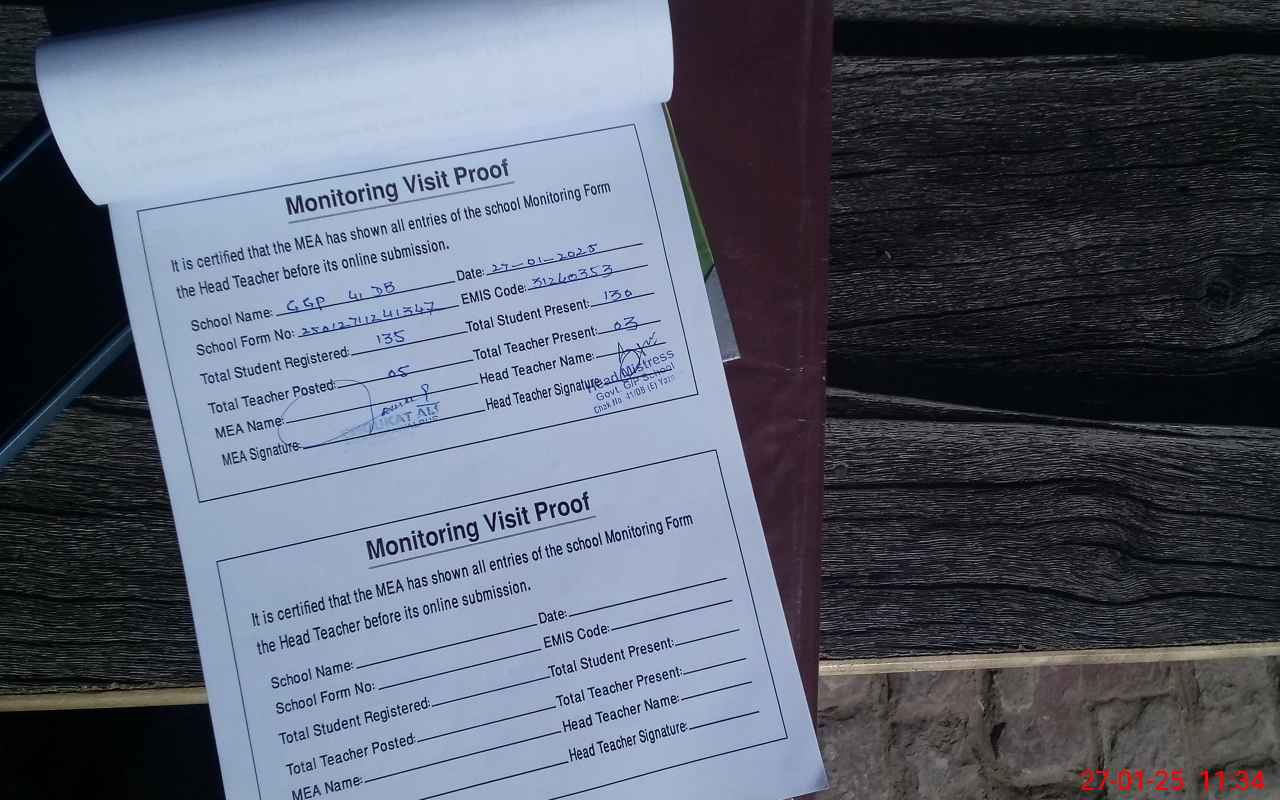 Monitoring Visit Proof
It is certified that the MEA has shown all entries of the school Monitoring Form
the Head Teacher before its online submission.
School Name: GGP 41 DB Date: 27-01-2025
School Form No: 25012711241347 EMIS Code: 31240353
Total Student Registered: 135 Total Student Present: 130
Total Teacher Posted: 05 Total Teacher Present: 03
MEA Name: Head Teacher Name:
MEA Signature: Head Teacher Signature:
UKAT ALI
Head Mistress
Govt. G/P School
Chak No. 41/DB (E) Yzn
Monitoring Visit Proof
It is certified that the MEA has shown all entries of the school Monitoring Form
the Head Teacher before its online submission.
School Name: Date:
School Form No: EMIS Code:
Total Student Registered: Total Student Present:
Total Teacher Posted: Total Teacher Present:
MEA Name: Head Teacher Name:
Head Teacher Signature:
27-01-25 11:34